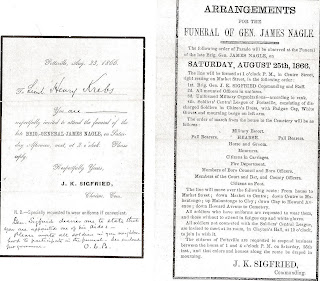 Pottsville, Aug. 23, 1866.
To Lieut Henry Krebs
You are
respectfully invited to attend the funeral of the
late BRIG.-GENERAL JAMES NAGLE, on Satur-
day Afternoon, next, at 2 o'clock. Please
reply.
Respectfully Yours,
J. K. SIGFRIED,
Chairm. Com.
N. B.—Specially requested to wear uniform if convenient.
Gen. Sigfried desires me to state that
you are appointed one of his Aides—
Please invite all soldiers in your neighbor-
hood to participate in the funeral
ARRANGEMENTS
FOR THE
FUNERAL OF GEN. JAMES NAGLE.
The following order of Parade will be observed at the Funeral
of the late Brig. Gen. JAMES NAGLE, on
SATURDAY, AUGUST 25th, 1866.
The line will be formed at 1 o'clock P. M., in Centre Street,
right resting on Market Street, in the following order:
1st. Brig. Gen. J. K. SIGFRIED Commanding and Staff.
2d. All mounted Officers in uniform.
3d. Uniformed Military Organizations—according to rank.
4th. Soldiers' Central League of Pottsville, consisting of dis-
charged Soldiers in Citizen's Dress, with Fatigue Cap, White
Gloves and mourning badge on left arm.
The order of march from the house to the Cemetery will be as
follows:
Military Escort.
Pall Bearers. HEARSE. Pall Bearers.
Horse and Groom.
Mourners.
Citizens in Carriages.
Fire Department.
Members of Boro Council and Boro Officers.
Members of the Court and Bar, and County Officers.
Citizens on Foot.
The line will move over the following route: From house to
Market Street; down Market to Centre; down Centre to Ma-
hantongo; up Mahantongo to Clay; down Clay to Howard Av-
enue; down Howard Avenue to Cemetery.
All soldiers who have uniforms are requested to wear them,
and all others to attend in fatigue cap and white gloves.
All soldiers not connected with the Soldiers' Central League,
are invited to meet at its room, in Clayton's Hall, at 10 o'clock,
to join in with it.
The citizens of Pottsville are requested to suspend business
between the hours of 1 and 4 o'clock P. M., on Saturday, 25th
inst., and that colors and houses along the route be draped in
mourning.
J. K. SIGFRIED,
Commanding.